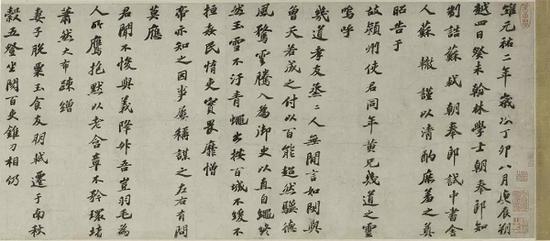 維元祐二年歲次丁卯八月庚辰朔
越四日癸未翰林學士朝奉郎知
制誥蘇軾朝奉郎試中書舍
人蘇轍謹以清酌庶羞之奠
昭告于
故潁州使君同年黃兄幾道之靈
嗚呼
幾道孝友烝烝人無間言如閔與
曾天若成之付以百能超然驥德
風騖雲騰入為御史以直自繩終
然玉雪不汙青蠅出按百城不緩不
拯姦民惰吏實畏靡憎
帝亦知之因事屢稱謀之左右有問
莫應
君聞不悛與義降升吾豈羽毛為
人所鷹抱默以老含章不矜環堵
蕭然大布疎繒
妻子脫粟玉食友朋軾遷于南秋
穀五登坐閱百吏錐刀相仍